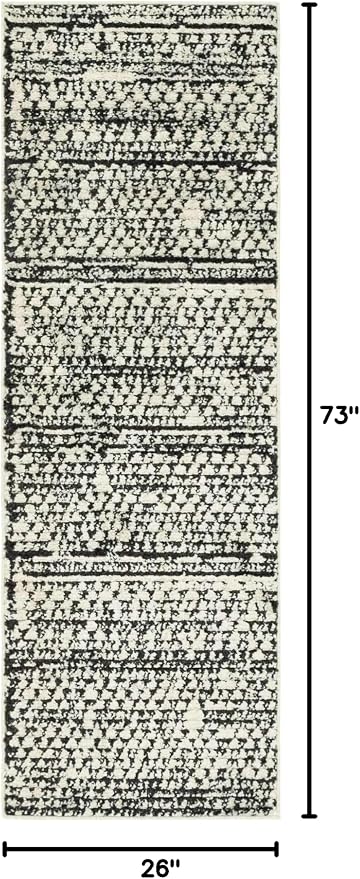 73"
26"